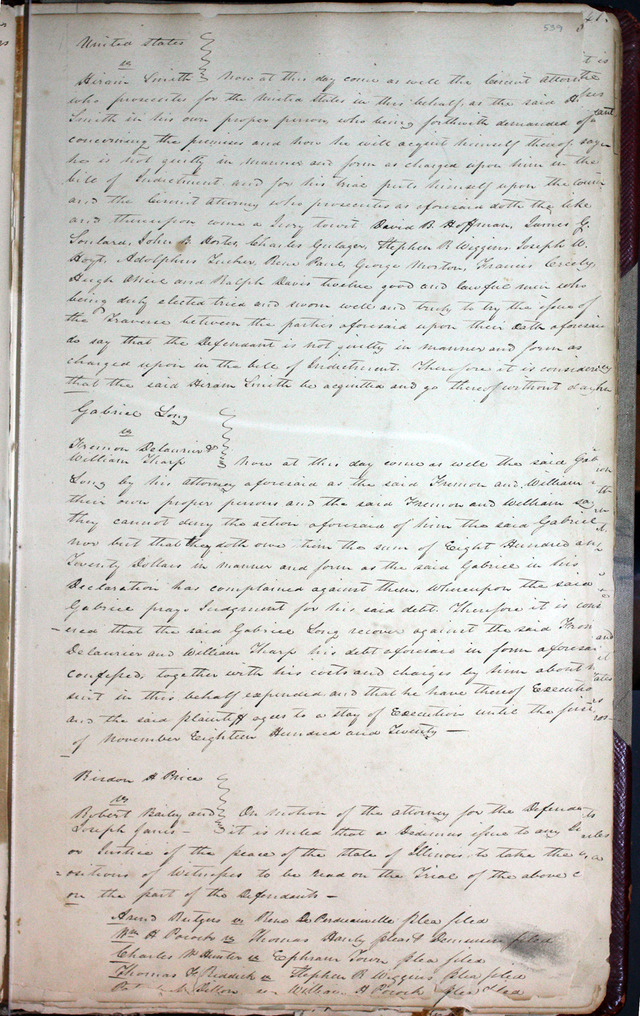 539
41.
United States
vs
Hiram Smith Now at this day come as well the Circuit Attorne
who prosecutes for the United States in this behalf, as the said H.
Smith in his own proper person, who being forthwith demanded of
concerning the premises and how he will acquit himself thereof, says
he is not guilty in manner and form as charged upon him in the
bill of Indictment, and for his trial puts himself upon the Coun
and the Circuit Attorney who prosecutes as aforesaid doth the like
and thereupon came a Jury towit David B. Hoffman, James G.
Soulard, John B. Cortes, Charles Gulager, Stephen R. Wiggins, Joseph W.
Hoyt, Adolphus Tucker, Rene Paul, George Morton, Francis Creely,
Hugh and Ralph Davis twelve good and lawful men who
being duly elected tried and sworn well and truly to try the issue of
the Traverse between the parties aforesaid upon their Oath aforesai
do say that the Defendant is not guilty in manner and form as
charged upon in the bill of Indictment. Therefore it is consider
that the said Hiram Smith be acquitted and go thereof without day
Gabriel Long
vs
Fremon Delaurier &
William Tharp Now at this day come as well the said Gab
Long by his attorney aforesaid as the said Fremon and William
their own proper persons and the said Fremon and William say
they cannot deny the action aforesaid of him the said Gabriel
nor but that they doth owe him the sum of Eight Hundred an
Twenty Dollars in manner and form as the said Gabriel in his
Declaration has complained against them. Whereupon the said
Gabriel prays Judgment for his said debt. Therefore it is cons
ered that the said Gabriel Long recover against the said Frem
Delaurier and William Tharp his debt aforesaid in form aforesai
confessed, together with his costs and charges by him about h
suit in this behalf expended and that he have thereof Executio
and the said plaintiff agees to a stay of Execution until the first
of November Eighteen Hundred and Twenty —
Risdon H Price
vs
Robert Baily and On motion of the attorney for the Defenda
Joseph James — it is ruled that a Dedimus issue to any
or Justice of the peace of the State of Illinois to take the
ositions of Witnesses to be read on the Trial of the above c
on the part of the Defendants —
Arend Rutgers vs Rene De plea filed
Wm H Pococke vs Thomas Hanly plea & Demurrer filed
Charles W Hunter vs Ephraim Town plea filed
Thomas F. Riddick vs Stephen R. Wiggins plea filed
Dillon vs William H Pocock plea filed